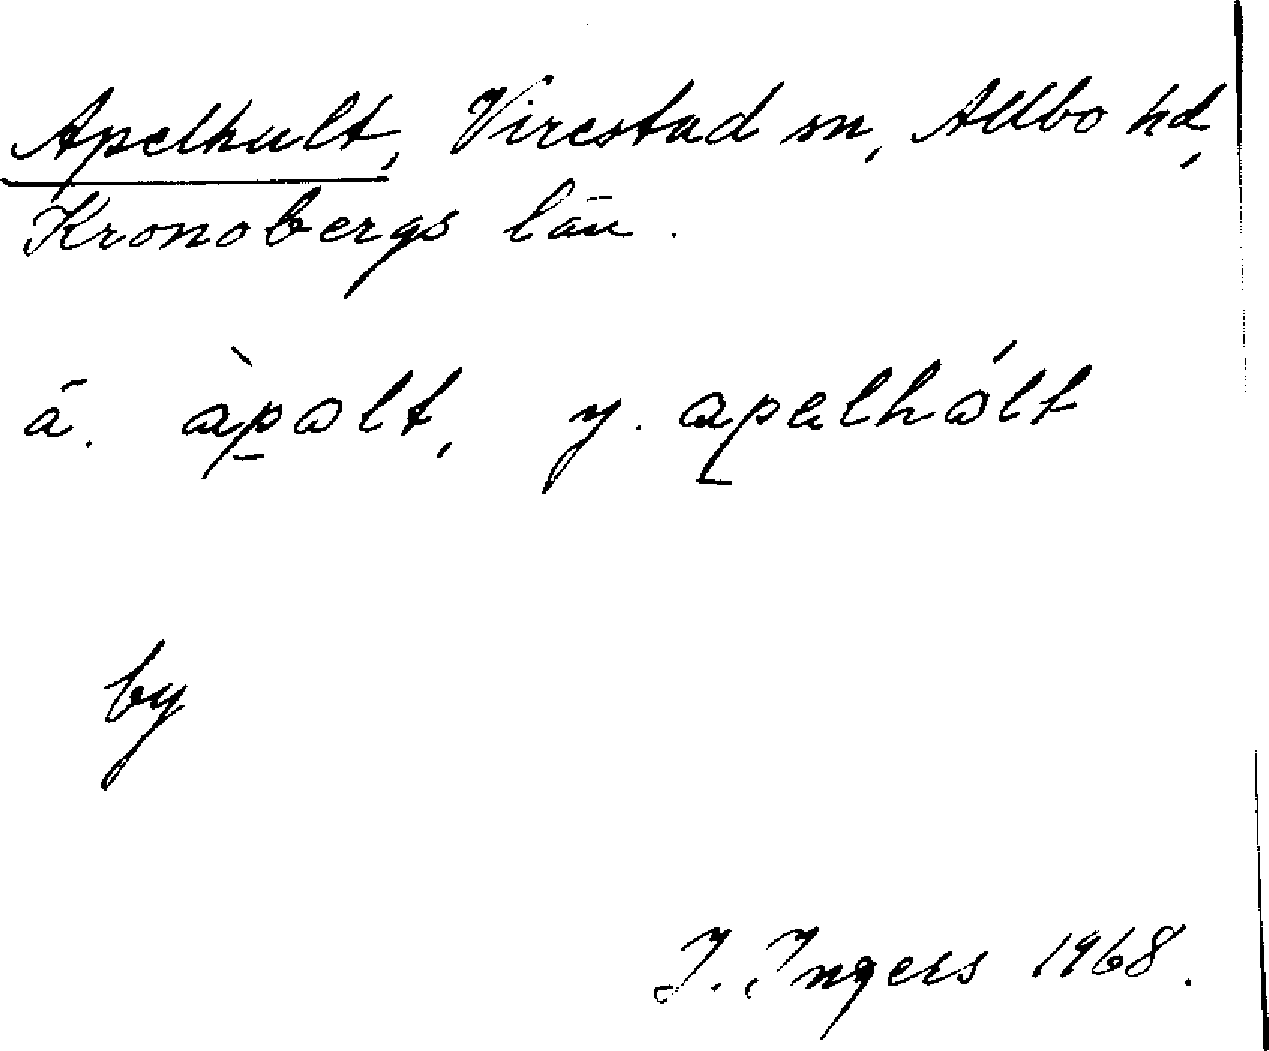 Apelhult, Virestad sn, Allbo hd,
Kronobergs län.
ä. àpolt, y. apelhólt
by
I. Ingers 1968.